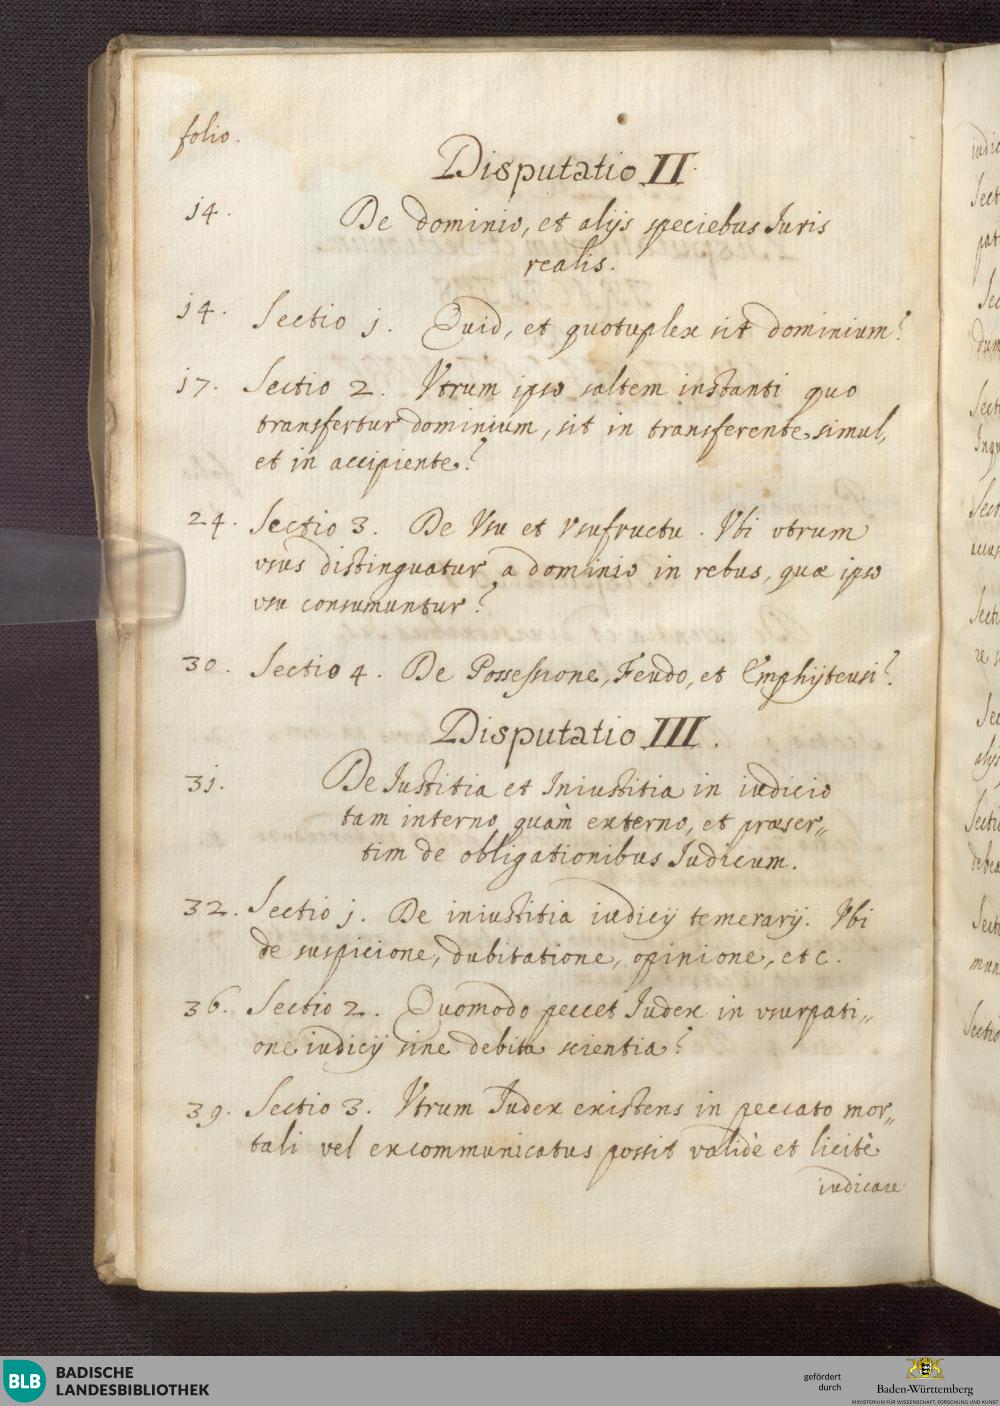 folio.
Disputatio II.
14. De dominio, et alijs speciebus Iuris
realis.
14. Sectio j. Quid, et quotuplex sit dominium?
17. Sectio 2. Vtrum ipso saltem instanti quo
transfertur dominium, sit in transferente simul,
et in accipiente?
24. Sectio 3. De Vsu et Vsufructu. Vbi vtrum
vsus distinguatur a dominio in rebus, quæ ipso
vsu consumuntur?
30. Sectio 4. De Possessione, Feudo, et Emphÿteusi?
Disputatio III.
3j. De Iustitia et Iniustitia in iudicio
tam interno quàm externo, et præser„
tim de obligationibus Iudicum.
32. Sectio j. De iniustitia iudicij temerarij. Vbi
de suspicione, dubitatione, opinione, etc.
36. Sectio 2. Quomodo peccet Iudex in vsurpati„
one iudicij sine debita scientia?
39. Sectio 3. Vtrum Iudex existens in peccato mor„
tali vel excommunicatus possit validè et licitè
iudicare
iudic
Sect
pat
Sec
dum
Sect
Sect
Sect
re
Sec
alijs
Sectio
debea
Sect
mun
Sectio
BLB BADISCHE
LANDESBIBLIOTHEK
gefördert
durch
Baden-Württemberg
MINISTERIUM FÜR WISSENSCHAFT, FORSCHUNG UND KUNST